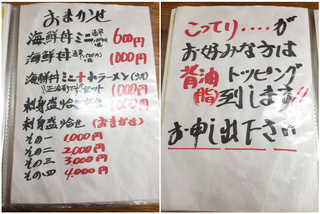 おまかせ
海鮮丼ミニ 600円
海鮮丼 1000円
海鮮丼ミニ+小ラーメン
セット 1000円
刺身盛り合せ 1000円
刺身盛り合せ(おまかせ)
その一 1,000円
その二 2,000円
その三 3,000円
その四 4,000円
こってり・・・・・が
お好みな方は
背油トッピング
(脂)到します!!
お申し出下さい